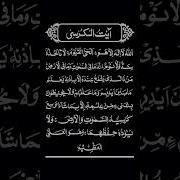 آیت الکرسی
اللّٰهُ لَا إِلٰهَ إِلَّا هُوَ الْحَيُّ الْقَيُّومُ لَا تَأْخُذُهُ
سِنَةٌ وَلَا نَوْمٌ لَهُ مَا فِي السَّمٰوٰتِ وَمَا فِي الْأَرْضِ
مَنْ ذَا الَّذِي يَشْفَعُ عِنْدَهُ إِلَّا بِإِذْنِهِ يَعْلَمُ
مَا بَيْنَ أَيْدِيهِمْ وَمَا خَلْفَهُمْ وَلَا يُحِيطُونَ
بِشَيْءٍ مِنْ عِلْمِهِ إِلَّا بِمَا شَاءَ وَسِعَ
كُرْسِيُّهُ السَّمٰوٰتِ وَالْأَرْضَ وَلَا
يَئُودُهُ حِفْظُهُمَا وَهُوَ الْعَلِيُّ
الْعَظِيمُ